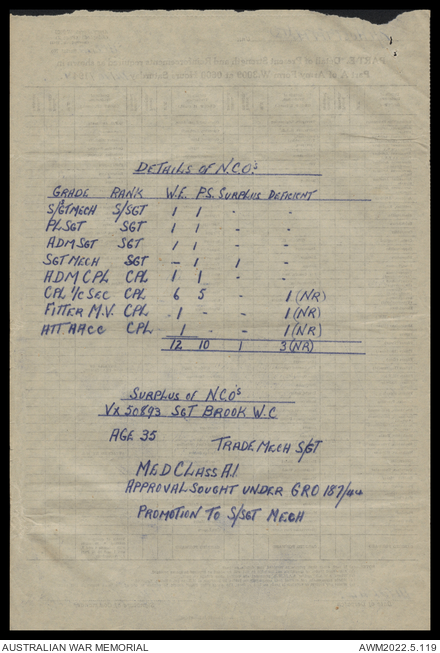 DETAILS OF N.C.O's
GRADE RANK W.E. P.S. SURPLUS DEFICIENT
S/SGT MECH S/SGT 1 1 - -
PL SGT SGT 1 1 - -
ADM SGT SGT 1 1 - -
SGT MECH SGT - 1 1 -
ADM CPL CPL 1 1 - -
CPL I/C SEC CPL 6 5 - 1 (NR)
FITTER M.V. CPL 1 - - 1 (NR)
ATT AACC CPL 1 - - 1 (NR)
12 10 1 3 (NR)
SURPLUS OF N.C.O's
VX 50893 SGT BROOK W.C
AGE 35
TRADE MECH S/SGT
MED CLASS A.1.
APPROVAL SOUGHT UNDER GRO 187/44
PROMOTION TO S/SGT MECH
AUSTRALIAN WAR MEMORIAL AWM2022.5.119